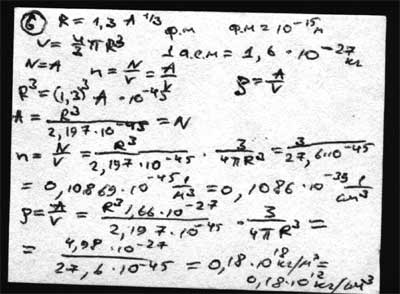 ⑥ R = 1,3 A^1/3 ф.м ф.м = 10^-15 м
V = 4/3 π R^3 1 а.е.м = 1,6 · 10^-27 кг
N = A n = N/V = A/V ρ = A/V
R^3 = (1,3)^3 A · 10^-45
A = R^3 / 2,197 · 10^-45 = N
n = N/V = R^3 / 2,197 · 10^-45 · 3 / 4πR^3 = 3 / 27,6 · 10^-45
= 0,10869 · 10^-45 1/м^3 = 0,1086 · 10^-39 1/см^3
ρ = A/V = R^3 1,66 · 10^-27 / 2,197 · 10^-45 · 3 / 4πR^3 =
= 4,98 · 10^-27 / 27,6 · 10^-45 = 0,18 · 10^18 кг/м^3 =
0,18 · 10^12 кг/см^3